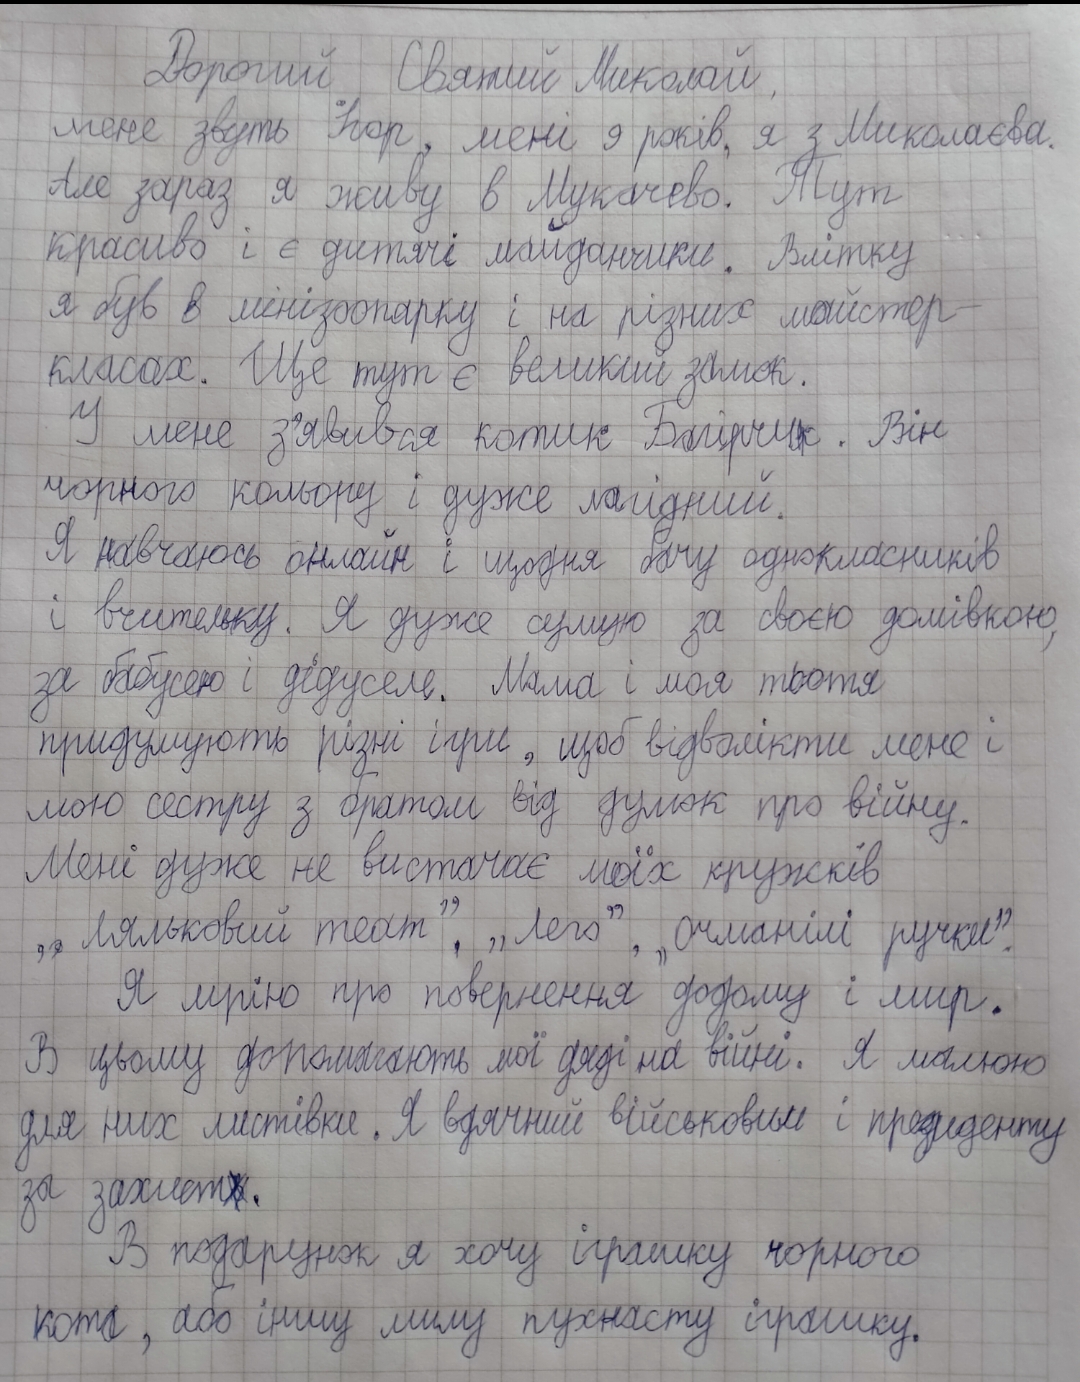 Дорогий Святий Миколай,
мене звуть Ігор, мені 9 років, я з Миколаєва.
Але зараз я живу в Мукачево. Тут
красиво і є дитячі майданчики. Влітку
я був в мінізоопарку і на різних майстер-
класах. Ще тут є великий замок.
У мене з'явився котик Багірчик. Він
чорного кольору і дуже лагідний.
Я навчаюсь онлайн і щодня бачу однокласників
і вчительку. Я дуже сумую за своєю домівкою,
за бабусею і дідусем. Мама і моя тьотя
придумують різні ігри, щоб відволікти мене і
мою сестру з братом від думок про війну.
Мені дуже не вистачає моїх кружків
„Ляльковий театр”, „Лего”, „Очманілі ручки”.
Я мрію про повернення додому і мир.
В цьому допомагають мої дяді на війні. Я малюю
для них листівки. Я вдячний військовим і президенту
за захист.
В подарунок я хочу іграшку чорного
кота, або іншу милу пухнасту іграшку.